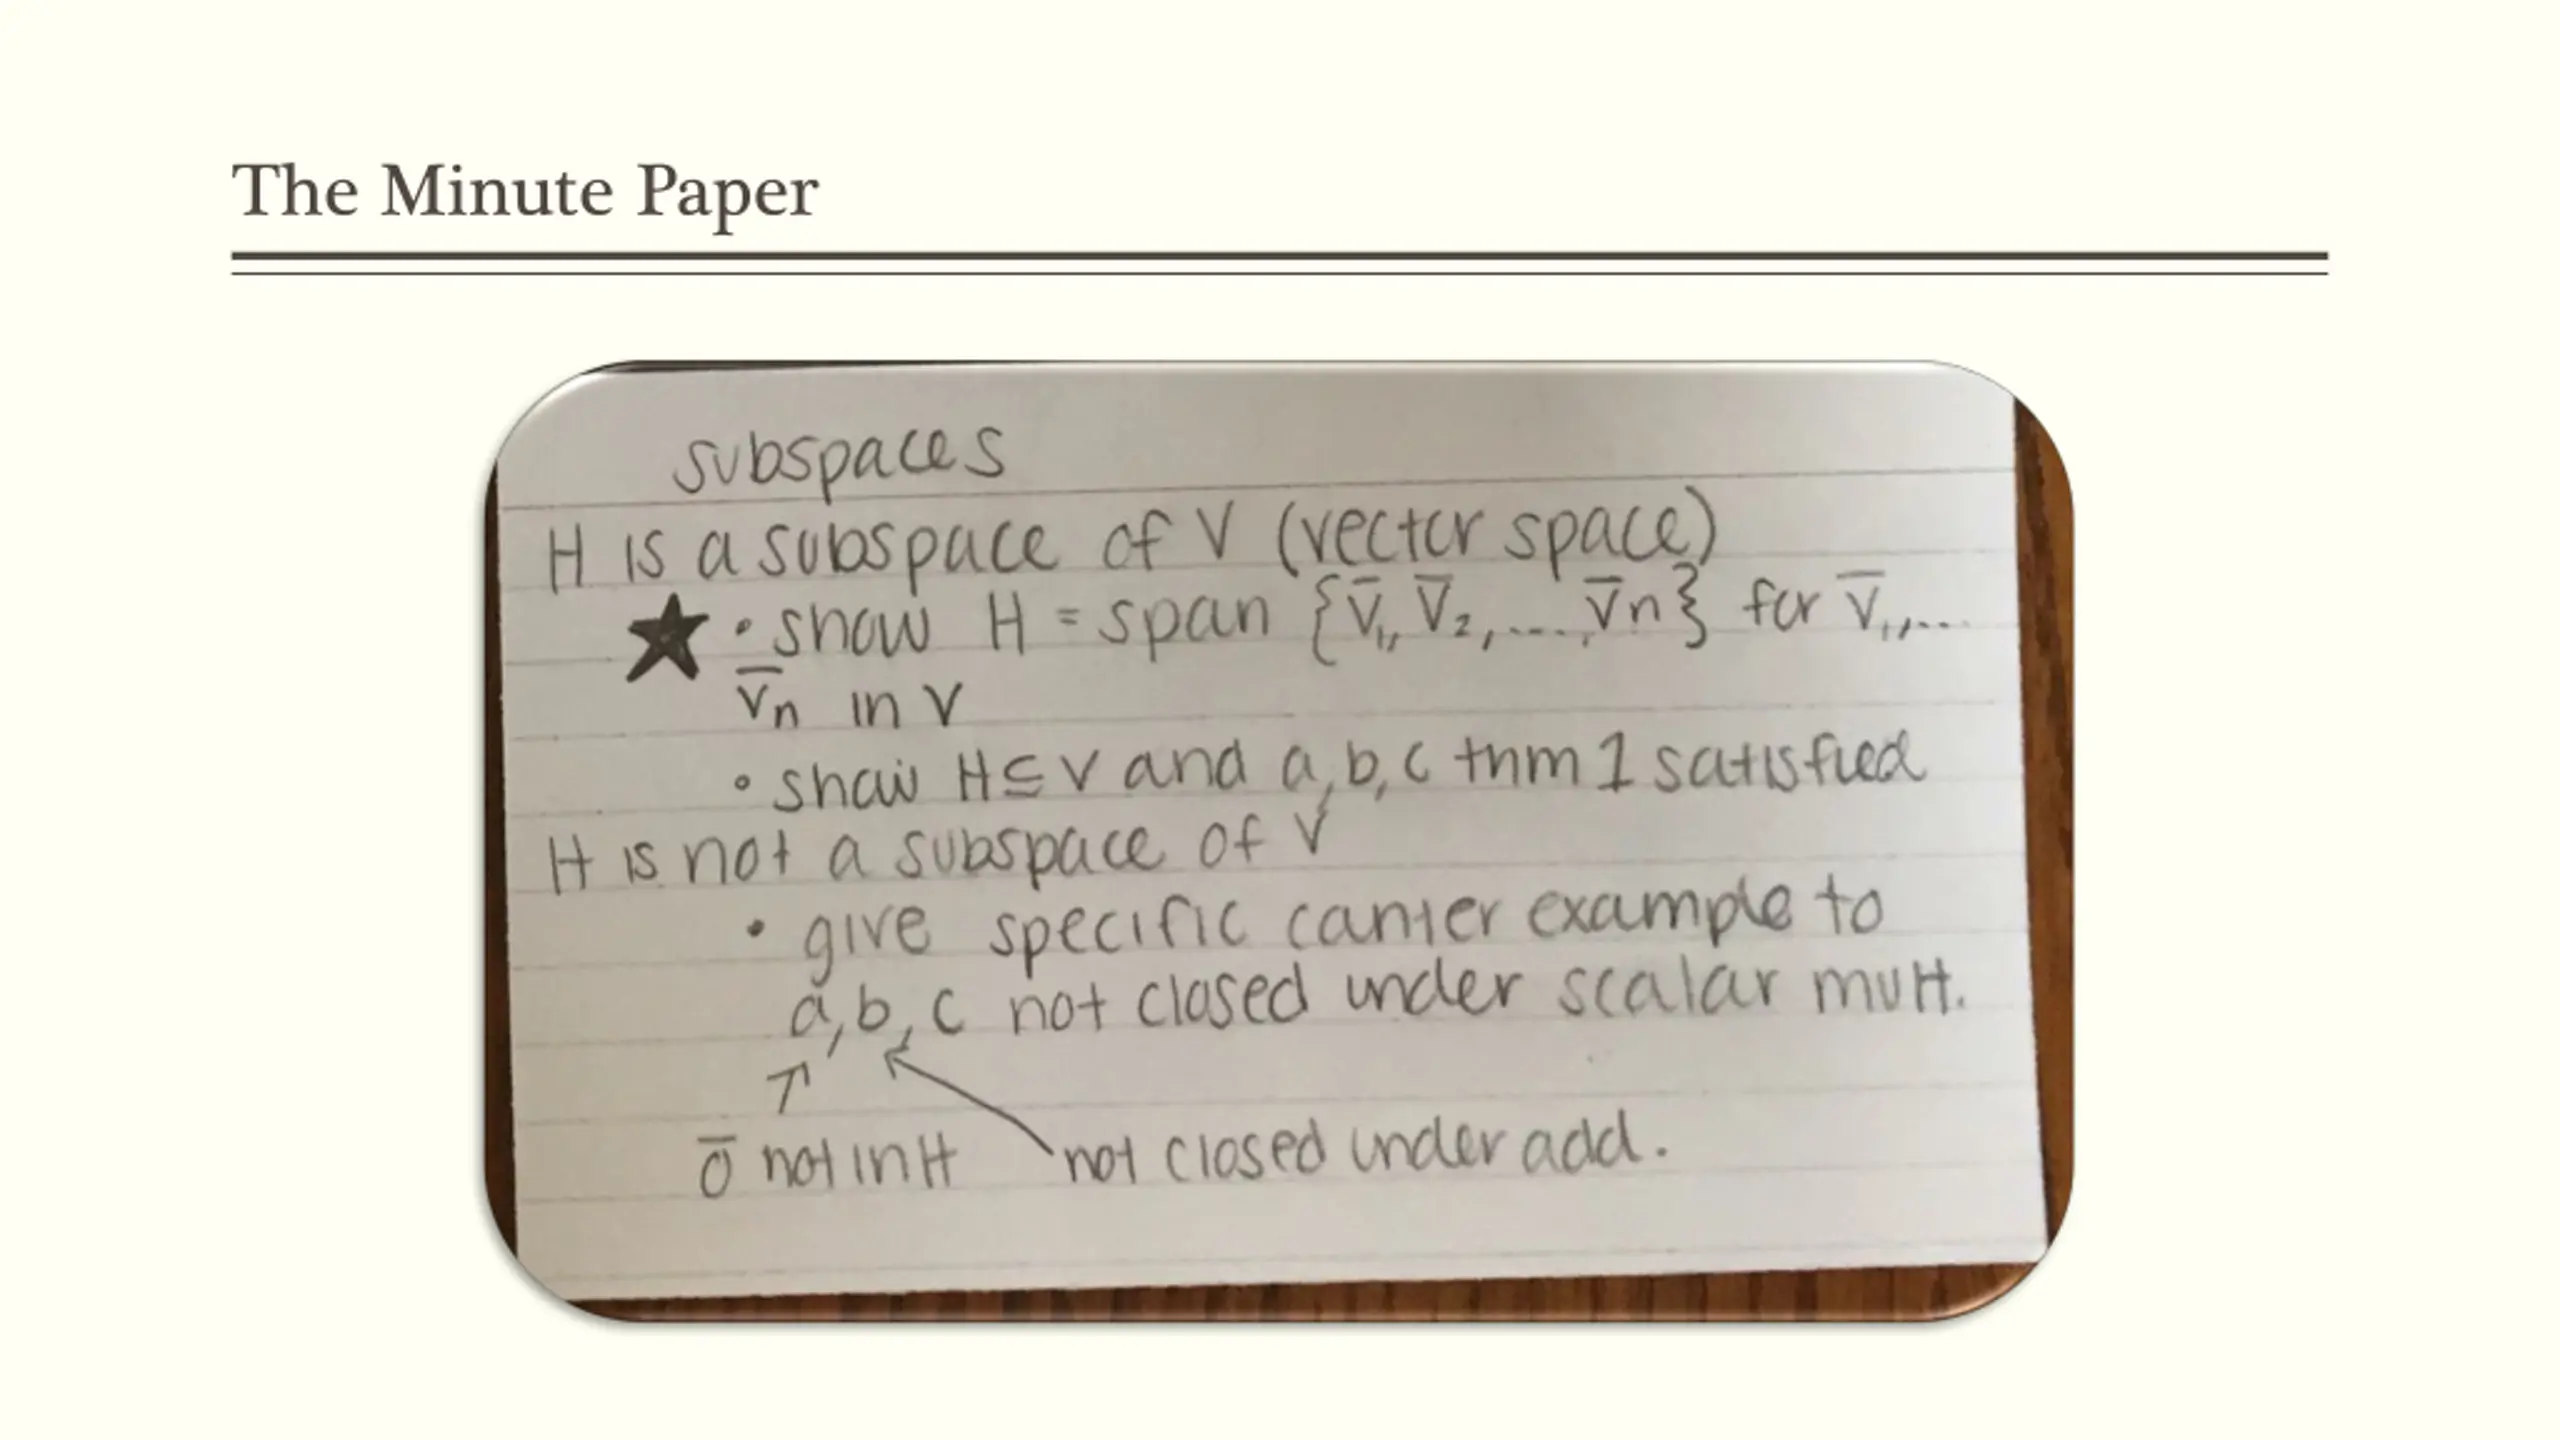 The Minute Paper
subspaces
H is a subspace of V (vector space)
★ • show H = span {v̄₁, v̄₂, ..., v̄n} for v̄₁,...
v̄n in V
• show H ⊆ V and a, b, c thm 1 satisfied
H is not a subspace of V
• give specific counter example to
a, b, c not closed under scalar mult.
0̄ not in H not closed under add.